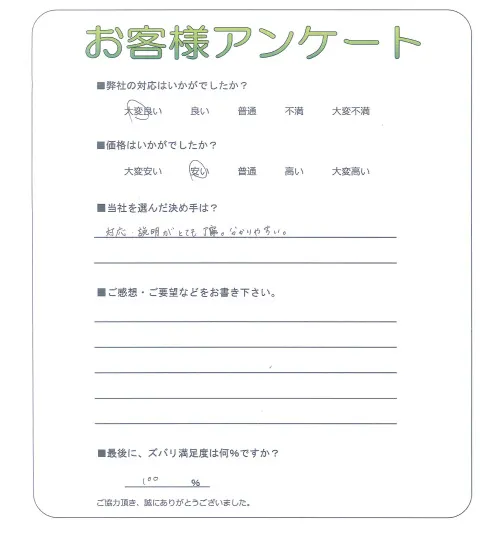 お客様アンケート
■弊社の対応はいかがでしたか？
大変良い 良い 普通 不満 大変不満
■価格はいかがでしたか？
大変安い 安い 普通 高い 大変高い
■当社を選んだ決め手は？
対応・説明がとても丁寧。分かりやすい。
■ご感想・ご要望などをお書き下さい。
■最後に、ズバリ満足度は何％ですか？
100 ％
ご協力頂き、誠にありがとうございました。